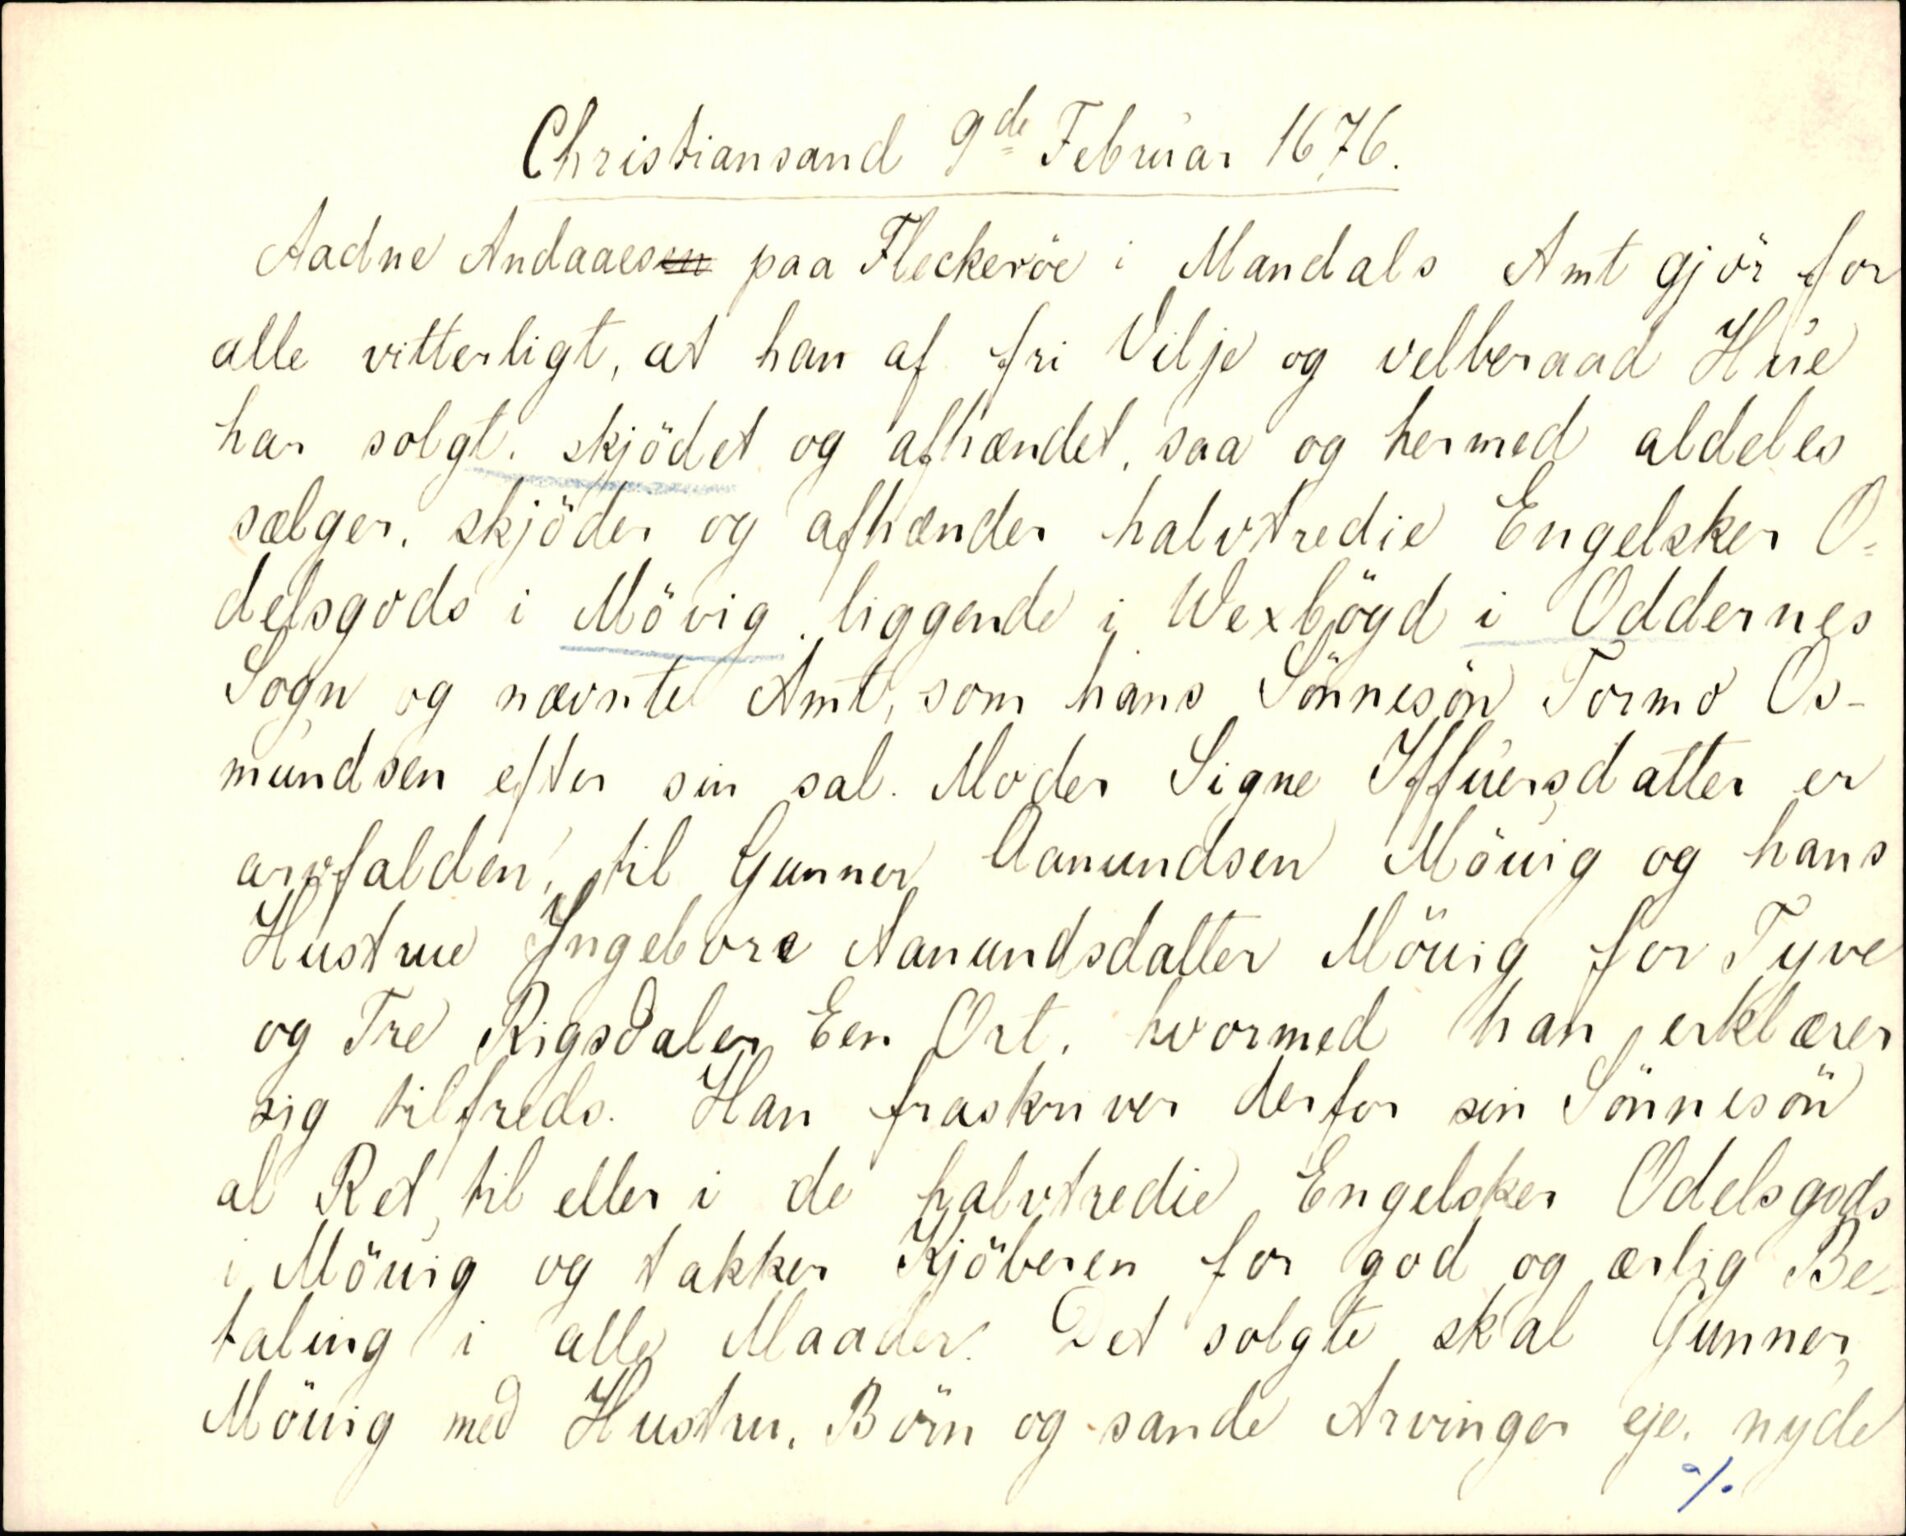 Christiansand 9de Februar 1676.
Aadne Andaaesen paa Fleckeröe i Mandals Amt gjör for
alle vitterligt, at han af fri Vilje og velberaad Hue
har solgt. skjödet og afhændet. saa og hermed aldeles
sælger. skjöder og afhænder halvtredie Engelsker O=
delsgods i Mövig. liggende i Wexbögd i Oddernes
Sogn og nævnte Amt, som hans Sönnesön Tormo Os-
mundsen efter sin sal. Moder Signe Iffuersdatter er
arvfalden, til Gunner Aanundsen Möuig og hans
Hustrue Ingebore Aanundsdatter Möuig for Tyve
og Tre Rigsdaler Een Ort. hvormed han erklærer
sig tilfreds. Han fraskriver derfor sin Sönnesön
al Ret til eller i de halvtredie Engelsker Odelsgods
i Möuig og takker Kjöberen for god og ærlig Be-
taling i alle Maader. Det solgte skal Gunner
Möuig med Hustru, Börn og sande Arvinger eje. nyde
%.